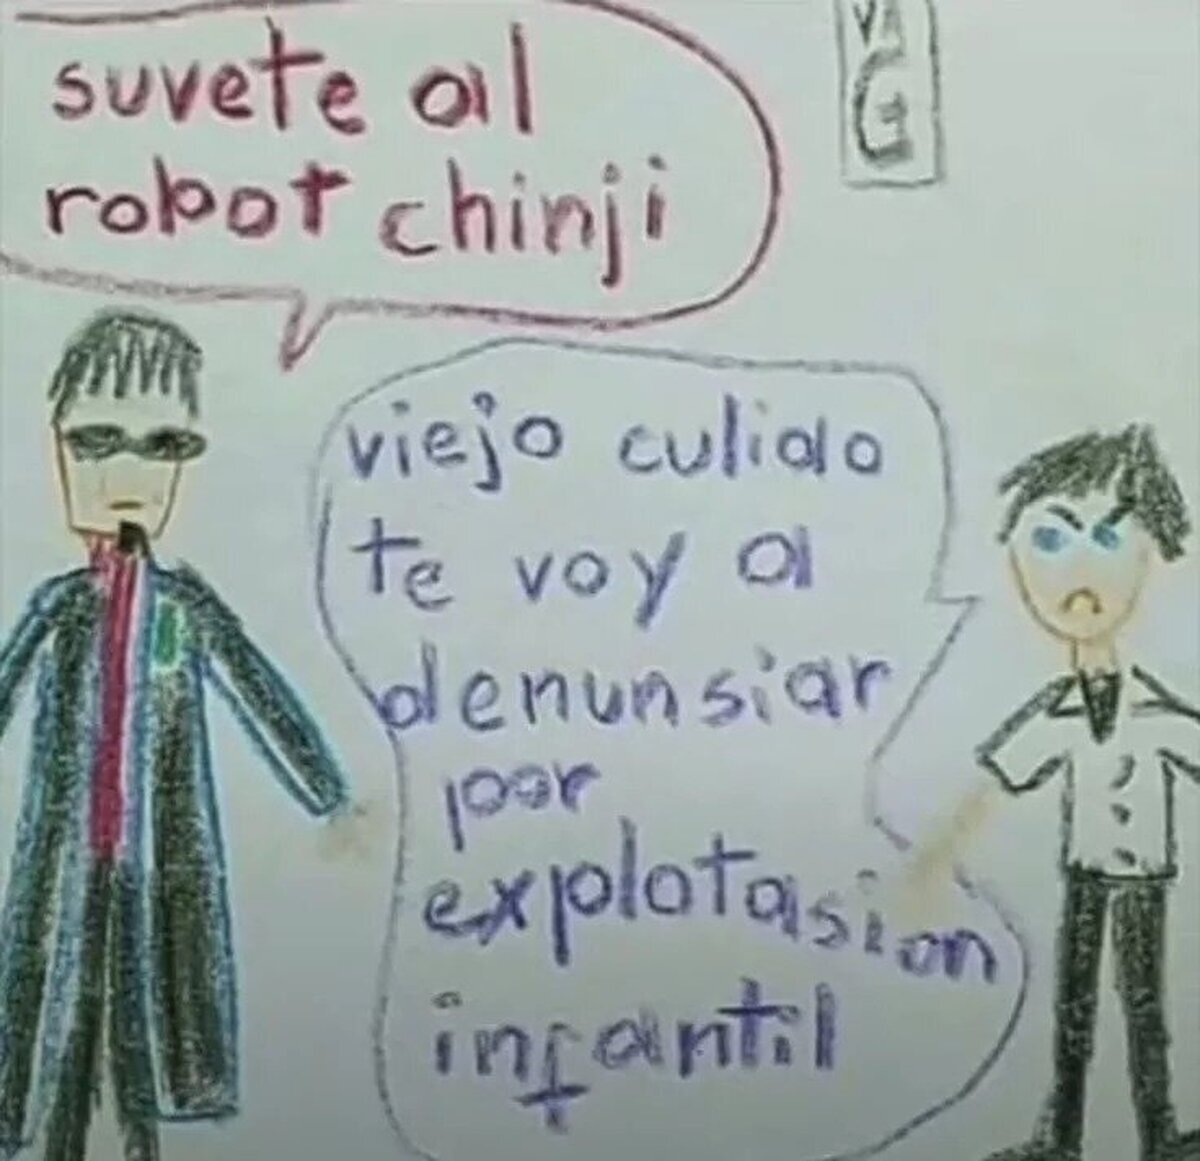 suvete al
robot chinji
viejo culiao
te voy a
denunsiar
por
explotasion
infantil